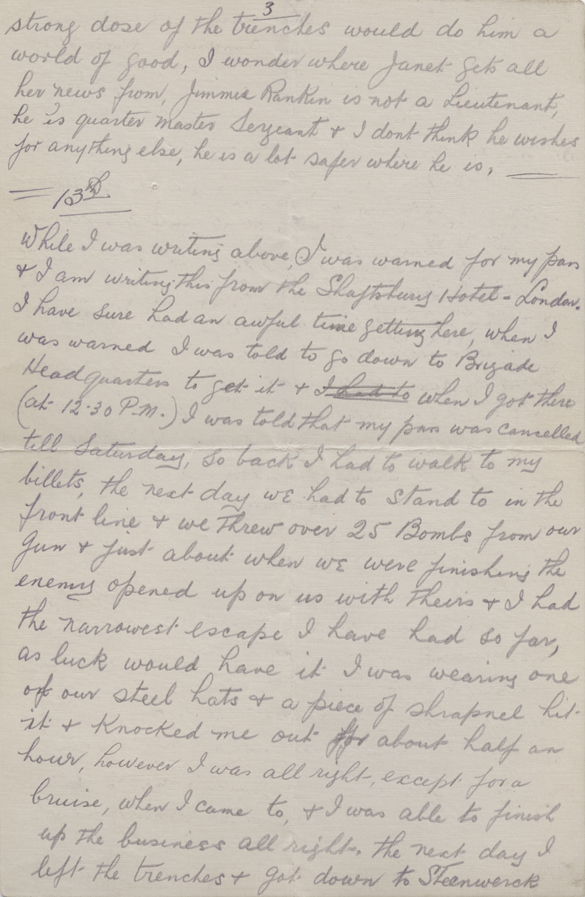 3
strong dose of the trenches would do him a
world of good, I wonder where Janet gets all
her news from, Jimmie Rankin is not a Lieutenant,
he is quarter master Sergeant & I dont think he wishes
for anything else, he is a lot safer where he is,
13th
While I was writing above, I was warned for my pass
& I am writing this from the Shaftsbury Hotel - London.
I have sure had an awful time getting here, when I
was warned I was told to go down to Brigade
Headquarters to get it & I had to when I got there
(at 12.30 P.M.) I was told that my pass was cancelled
till Saturday, so back I had to walk to my
billets, the next day we had to stand to in the
front line & we threw over 25 Bombs from our
gun & just about when we were finishing the
enemy opened up on us with theirs & I had
the narrowest escape I have had so far,
as luck would have it I was wearing one
of our steel hats & a piece of shrapnel hit
it & Knocked me out for about half an
hour, however I was all right, except for a
bruise, when I came to, & I was able to finish
up the business all right. the next day I
left the trenches & got down to Steenwerck